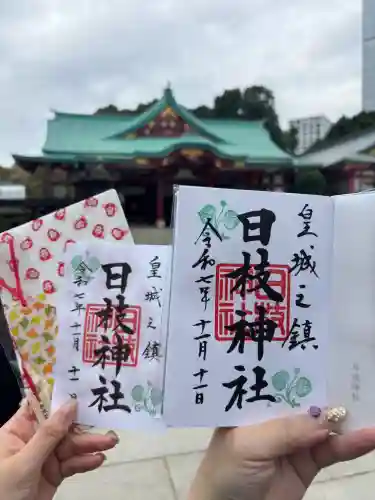 皇城之鎮
日枝神社
令和七年十一月十一日
皇城之鎮
日枝神社
令和七年十一月十一日